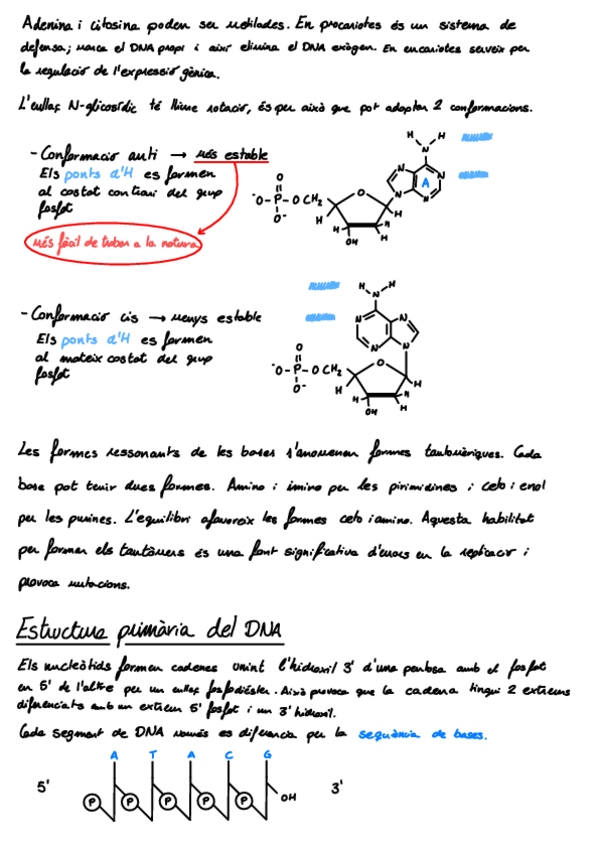 Adenina i citosina poden ser metilades. En procariotes és un sistema de
defensa; marca el DNA propi i així elimina el DNA exògen. En eucariotes serveix per
la regulació de l'expressió gènica.
L'enllaç N-glicosídic té lliure rotació, és per això que pot adoptar 2 conformacions.
- Conformació anti → més estable
Els ponts d'H es formen
al costat contrari del grup
fosfat
més fàcil de trobar a la natura
H H
N
N N
A
N N
O
-O-P-O CH2 O
O-
H H
H H
OH H
- Conformació cis → menys estable
Els ponts d'H es formen
al mateix costat del grup
fosfat
H H
N
N N
N N
O
-O-P-O CH2 O
O-
H H
H H
OH H
Les formes ressonants de les bases s'anomenen formes tautomèriques. Cada
base pot tenir dues formes. Amino i imino per les pirimidines i ceto i enol
per les purines. L'equilibri afavoreix les formes ceto i amino. Aquesta habilitat
per formar els tautòmers és una font significativa d'errors en la replicació i
provoca mutacions.
Estructura primària del DNA
Els nucleòtids formen cadenes unint l'hidroxil 3' d'una pentosa amb el fosfat
en 5' de l'altre per un enllaç fosfodièster. Això provoca que la cadena tingui 2 extrems
diferenciats amb un extrem 5' fosfat i un 3' hidroxil.
Cada segment de DNA només es diferencia per la seqüència de bases.
A T A C G
5' P P P P P OH 3'